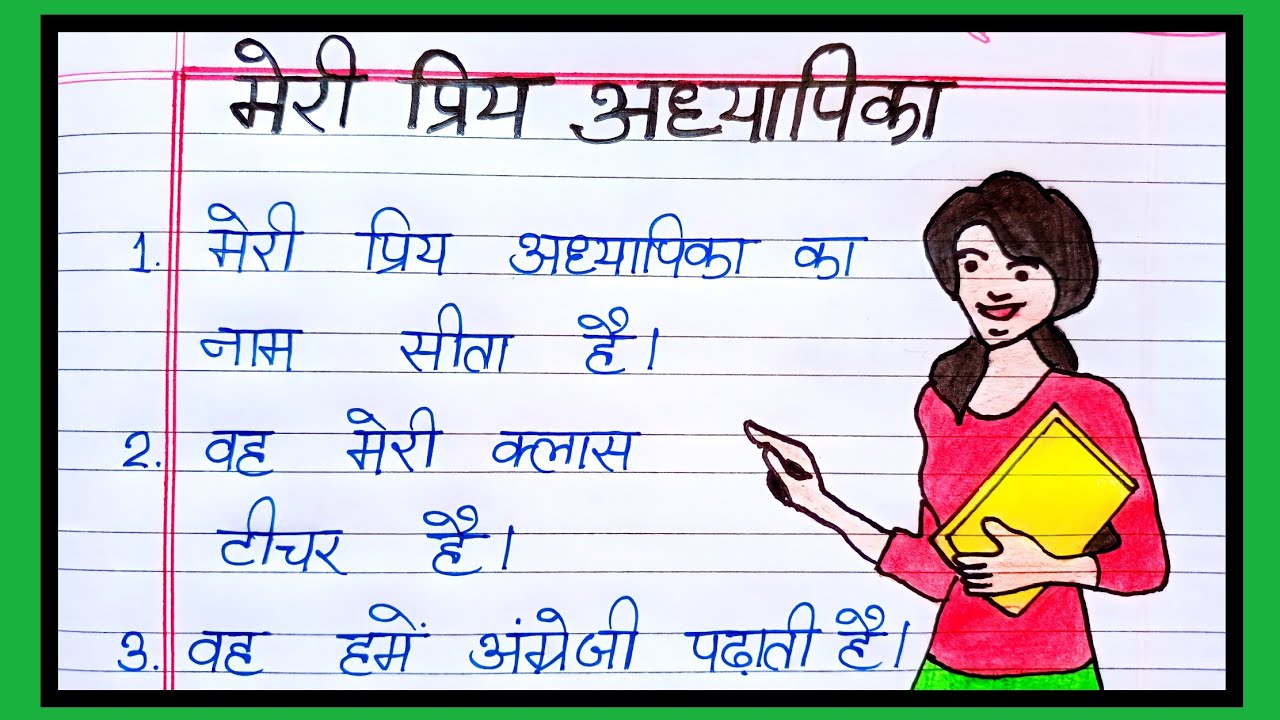 मेरी प्रिय अध्यापिका
1. मेरी प्रिय अध्यापिका का
नाम सीता है।
2. वह मेरी क्लास
टीचर है।
3. वह हमें अंग्रेजी पढ़ाती है।